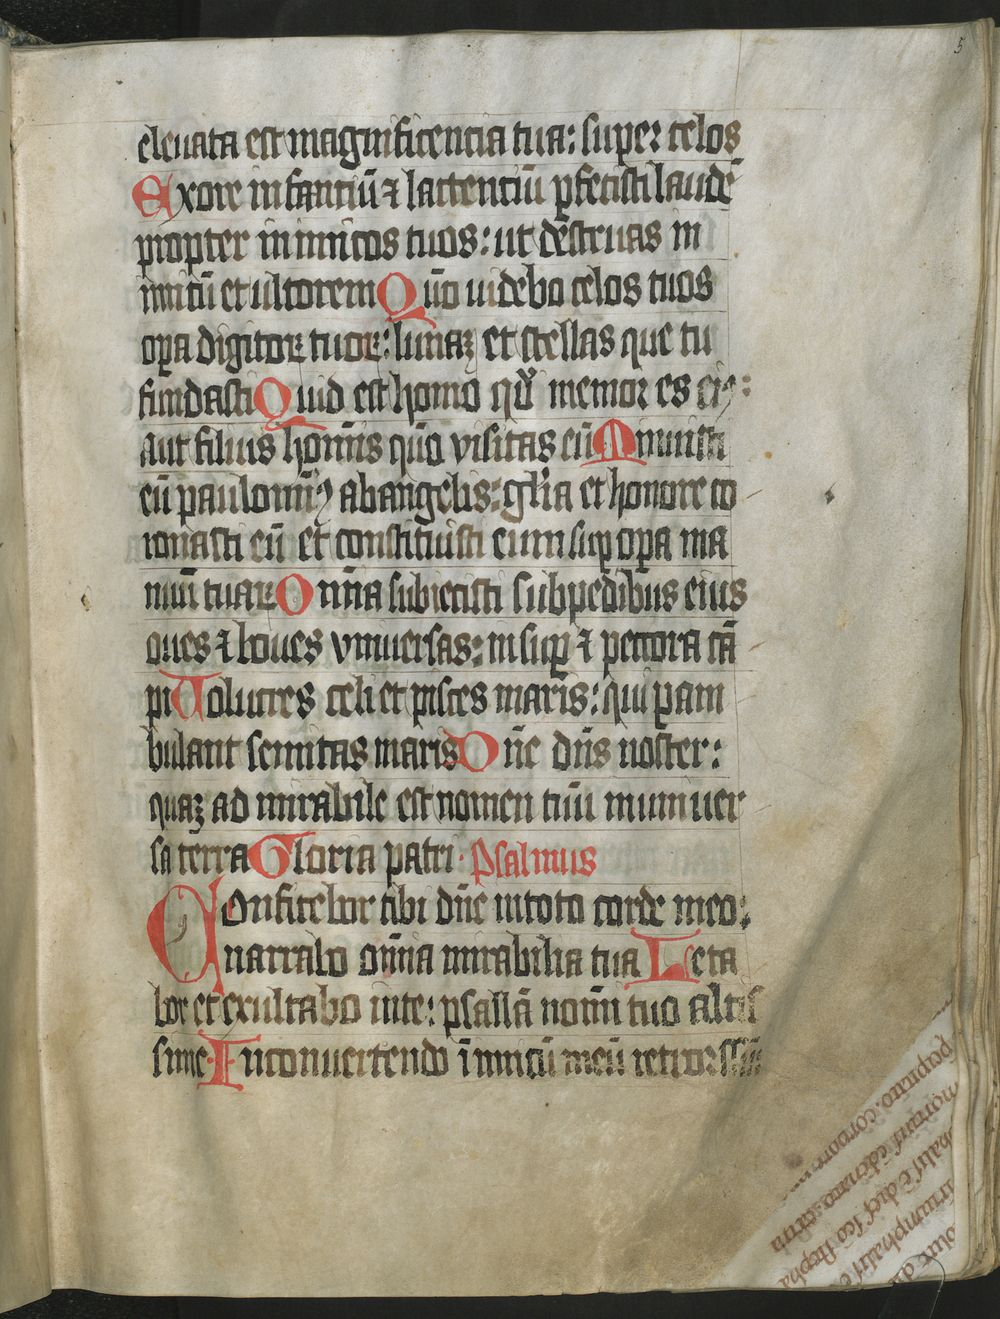 5
eleuata est magnificencia tua: super celos
Exore infantiū ⁊ lactentiū pfecisti laudē
propter inimicos tuos: ut destruas in
imicū et ultorem Quō uidebo celos tuos
opa digitoꝝ tuoꝝ: lunaꝫ et stellas que tu
fundasti Quid est homo qđ memor es eiꝰ:
aut filius homīs quō visitas eū Minuisti
eū paulominꝰ abangelis: glīa et honore co
ronasti eū et constituisti eum sup opa ma
nuū tuaꝝ Omīa subiecisti subpedibus eius
oues ⁊ boues vniuersas: insup ⁊ peccora cā
pi Volucres celi et pisces maris: qui pam
bulant semitas maris Dn̄e dn̄s noster:
quaꝫ ad mirabile est nomen tuū inuniuer
sa terra Gloria patri· Psalmus
Confitebor tibi dn̄e intoto corde meo:
narrabo om̄ia mirabilia tua Leta
bor et exultabo inte: psallā nomī tuo altis
sime· Inconuertendo īimicū meū retrorsū